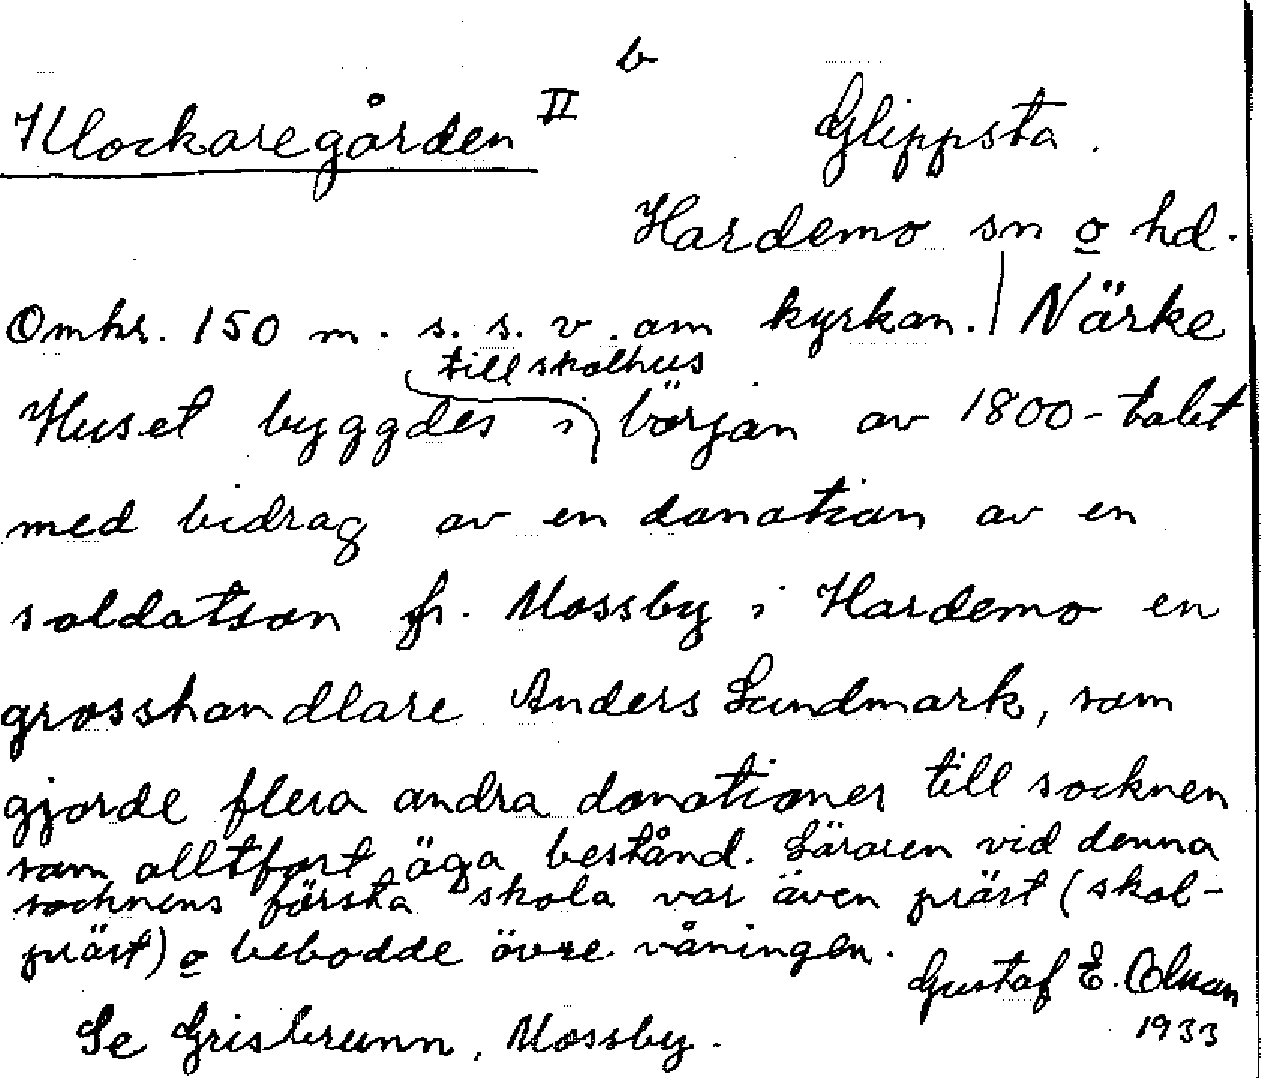 b
Klockaregården II Glippsta.
Hardemo sn o hd.
Omkr. 150 m. s. s. v. om kyrkan. | Närke
till skolhus
Huset byggdes i början av 1800-talet
med bidrag av en donation av en
soldatson fr. Mossby i Hardemo en
grosshandlare Anders Lundmark, som
gjorde flera andra donationer till socknen
som alltfort äga bestånd. Läraren vid denna
socknens första skola var även präst (skol-
präst) o bebodde övre våningen.
Gustaf E.
Se Grisbrunn, Mossby. 1933